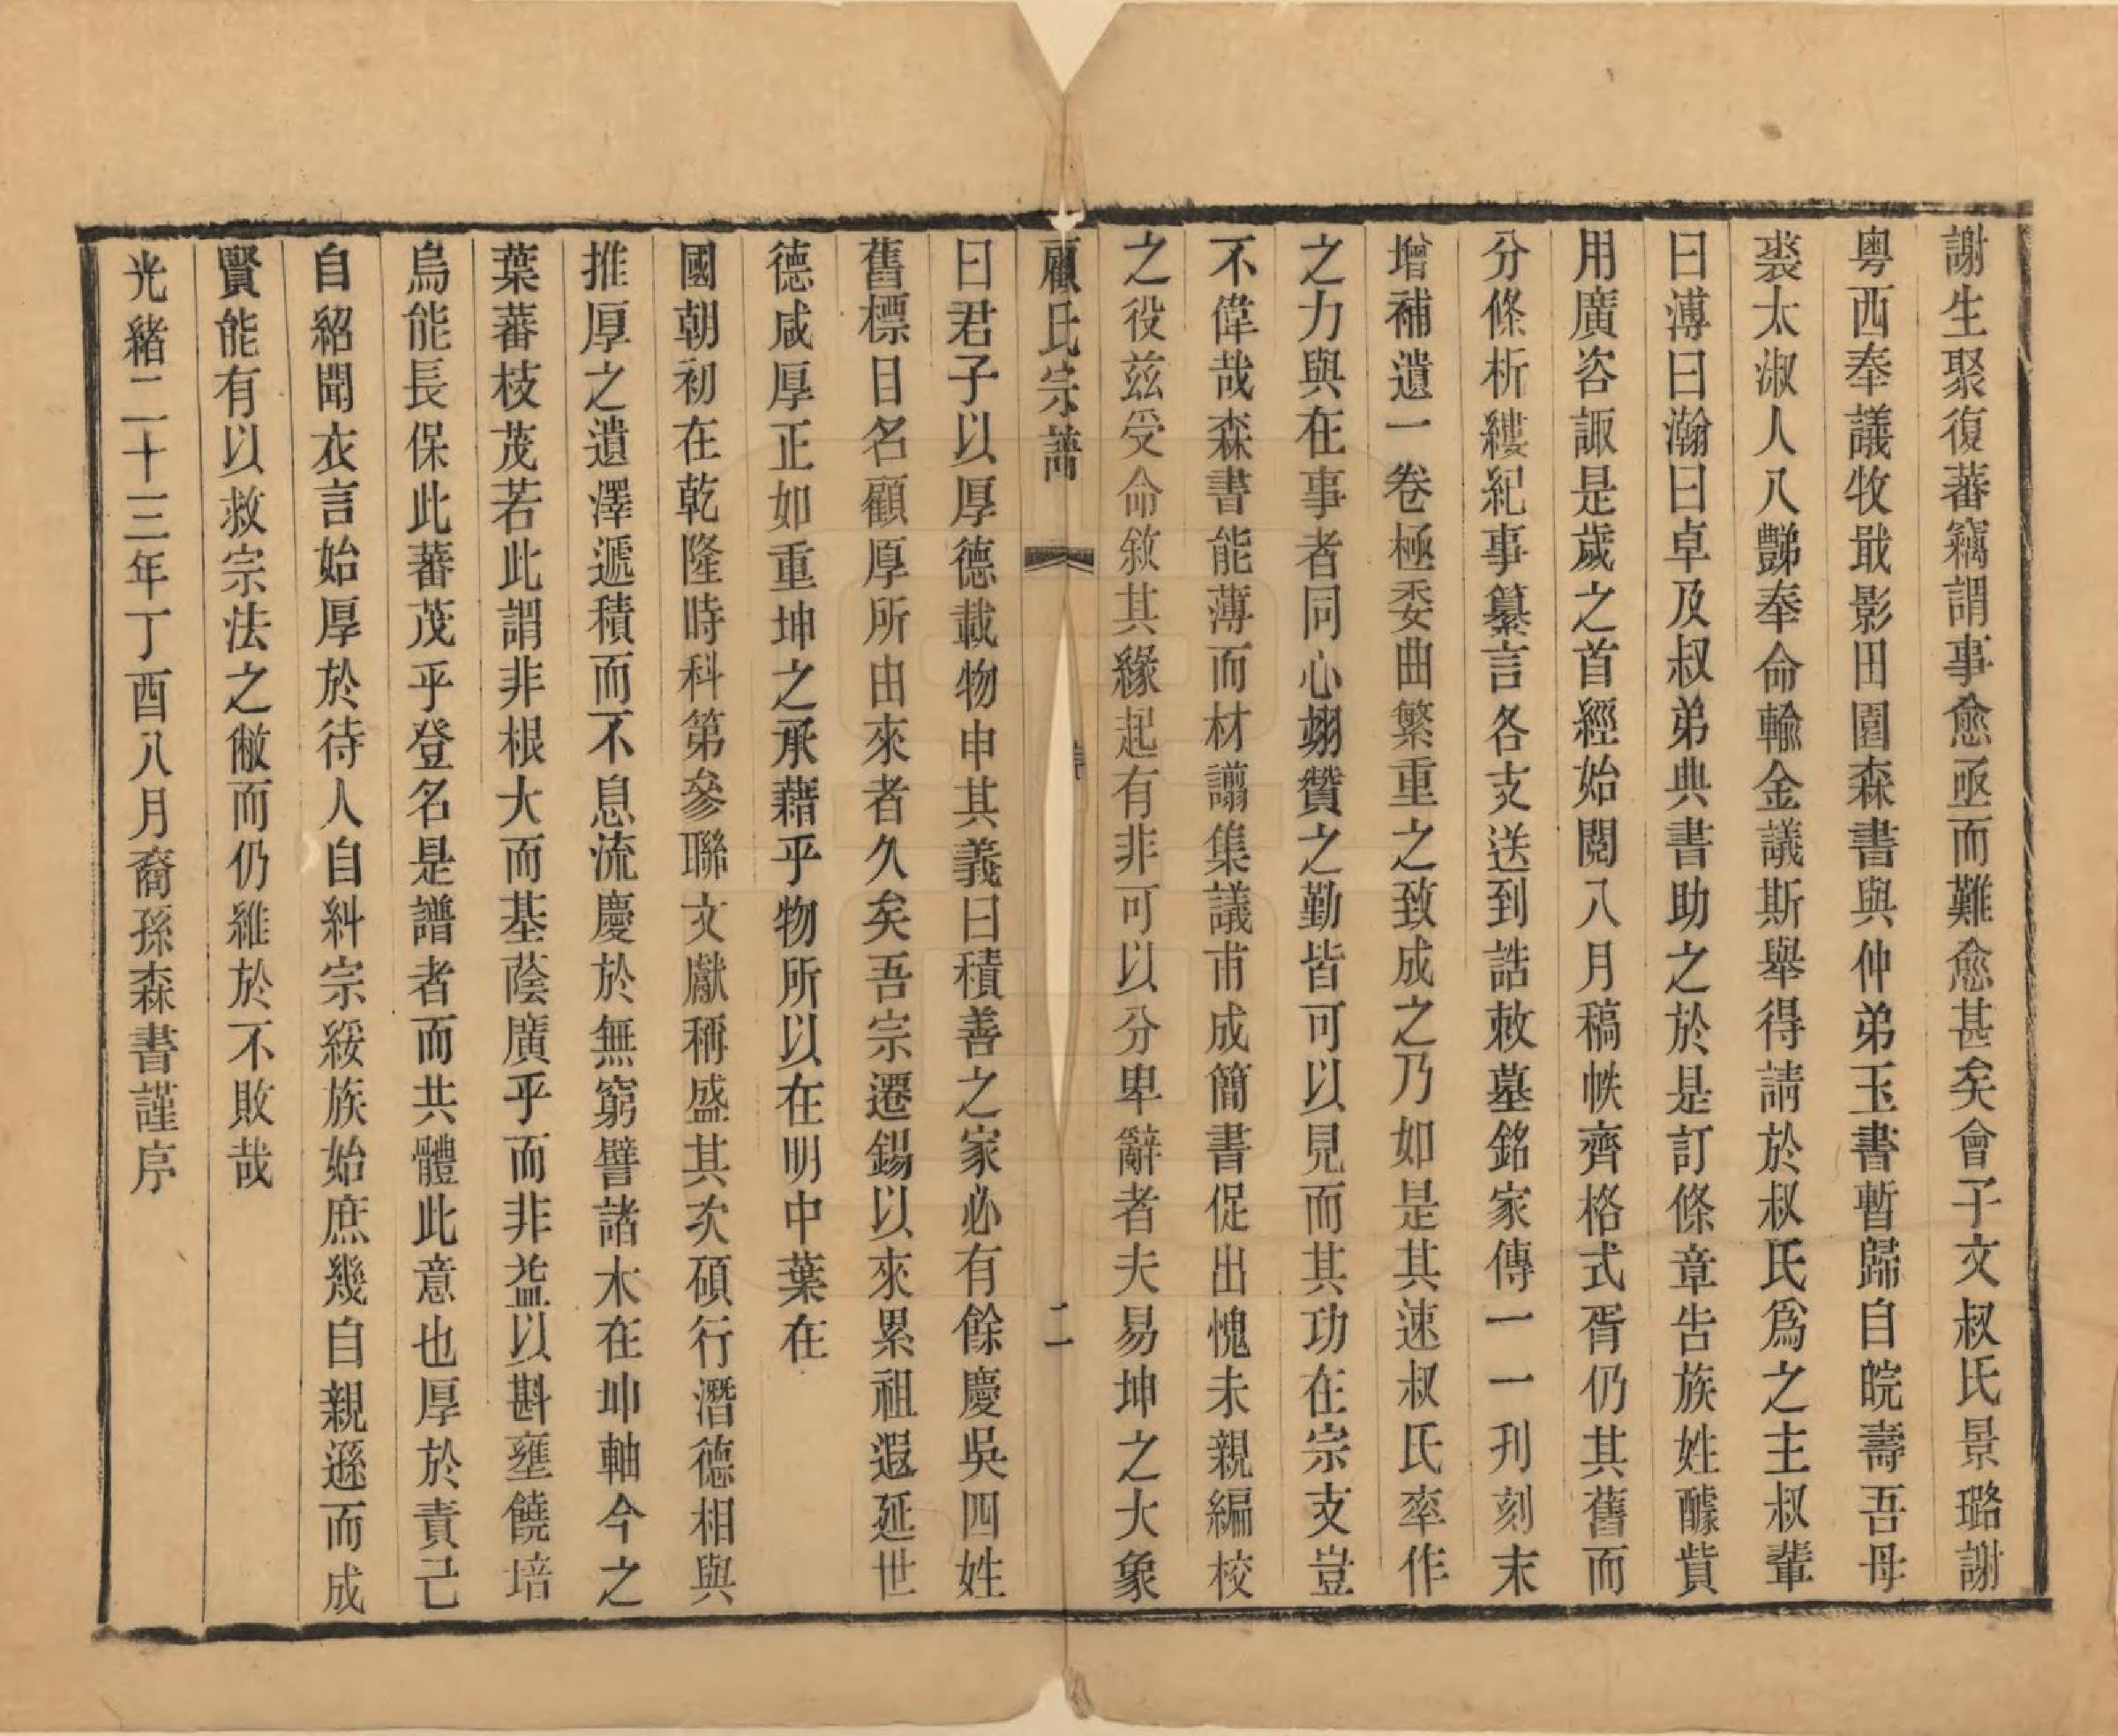 謝生聚復蕃竊謂事愈亟而難愈甚矣會子文叔氏景璐謝
粵西奉議牧戢影田園森書與仲弟玉書暫歸自皖壽吾母
裘太淑人八豑奉命輸金議斯舉得請於叔氏爲之主叔輩
曰溥曰瀚曰卓及叔弟典書助之於是訂條章告族姓醵貲
用廣咨諏是歲之首經始閱八月稿帙齊格式胥仍其舊而
分條析縷紀事纂言各支送到誥敕墓銘家傳一一刋刻末
增補遺一卷極委曲繁重之致成之乃如是其速叔氏率作
之力與在事者同心翊贊之勤皆可以見而其功在宗支豈
不偉哉森書能薄而材譾集議甫成簡書促出愧未親編校
之役兹受命敘其緣起有非可以分卑辭者夫易坤之大象
顧氏宗譜
二
曰君子以厚德載物申其義曰積善之家必有餘慶吳四姓
舊標目名顧厚所由來者久矣吾宗遷錫以來累祖遐延世
德咸厚正如重坤之承藉乎物所以在明中葉在
國朝初在乾隆時科第參聯文獻稱盛其次碩行潛德相與
推厚之遺澤遞積而不息流慶於無窮譬諸木在坤軸今之
葉蕃枝茂若此謂非根大而基蔭廣乎而非益以斟壅饒培
烏能長保此蕃茂乎登名是譜者而共體此意也厚於責己
自紹聞衣言始厚於待人自糾宗綏族始庶幾自親遜而成
賢能有以救宗法之敝而仍維於不敗哉
光緒二十三年丁酉八月裔孫森書謹序